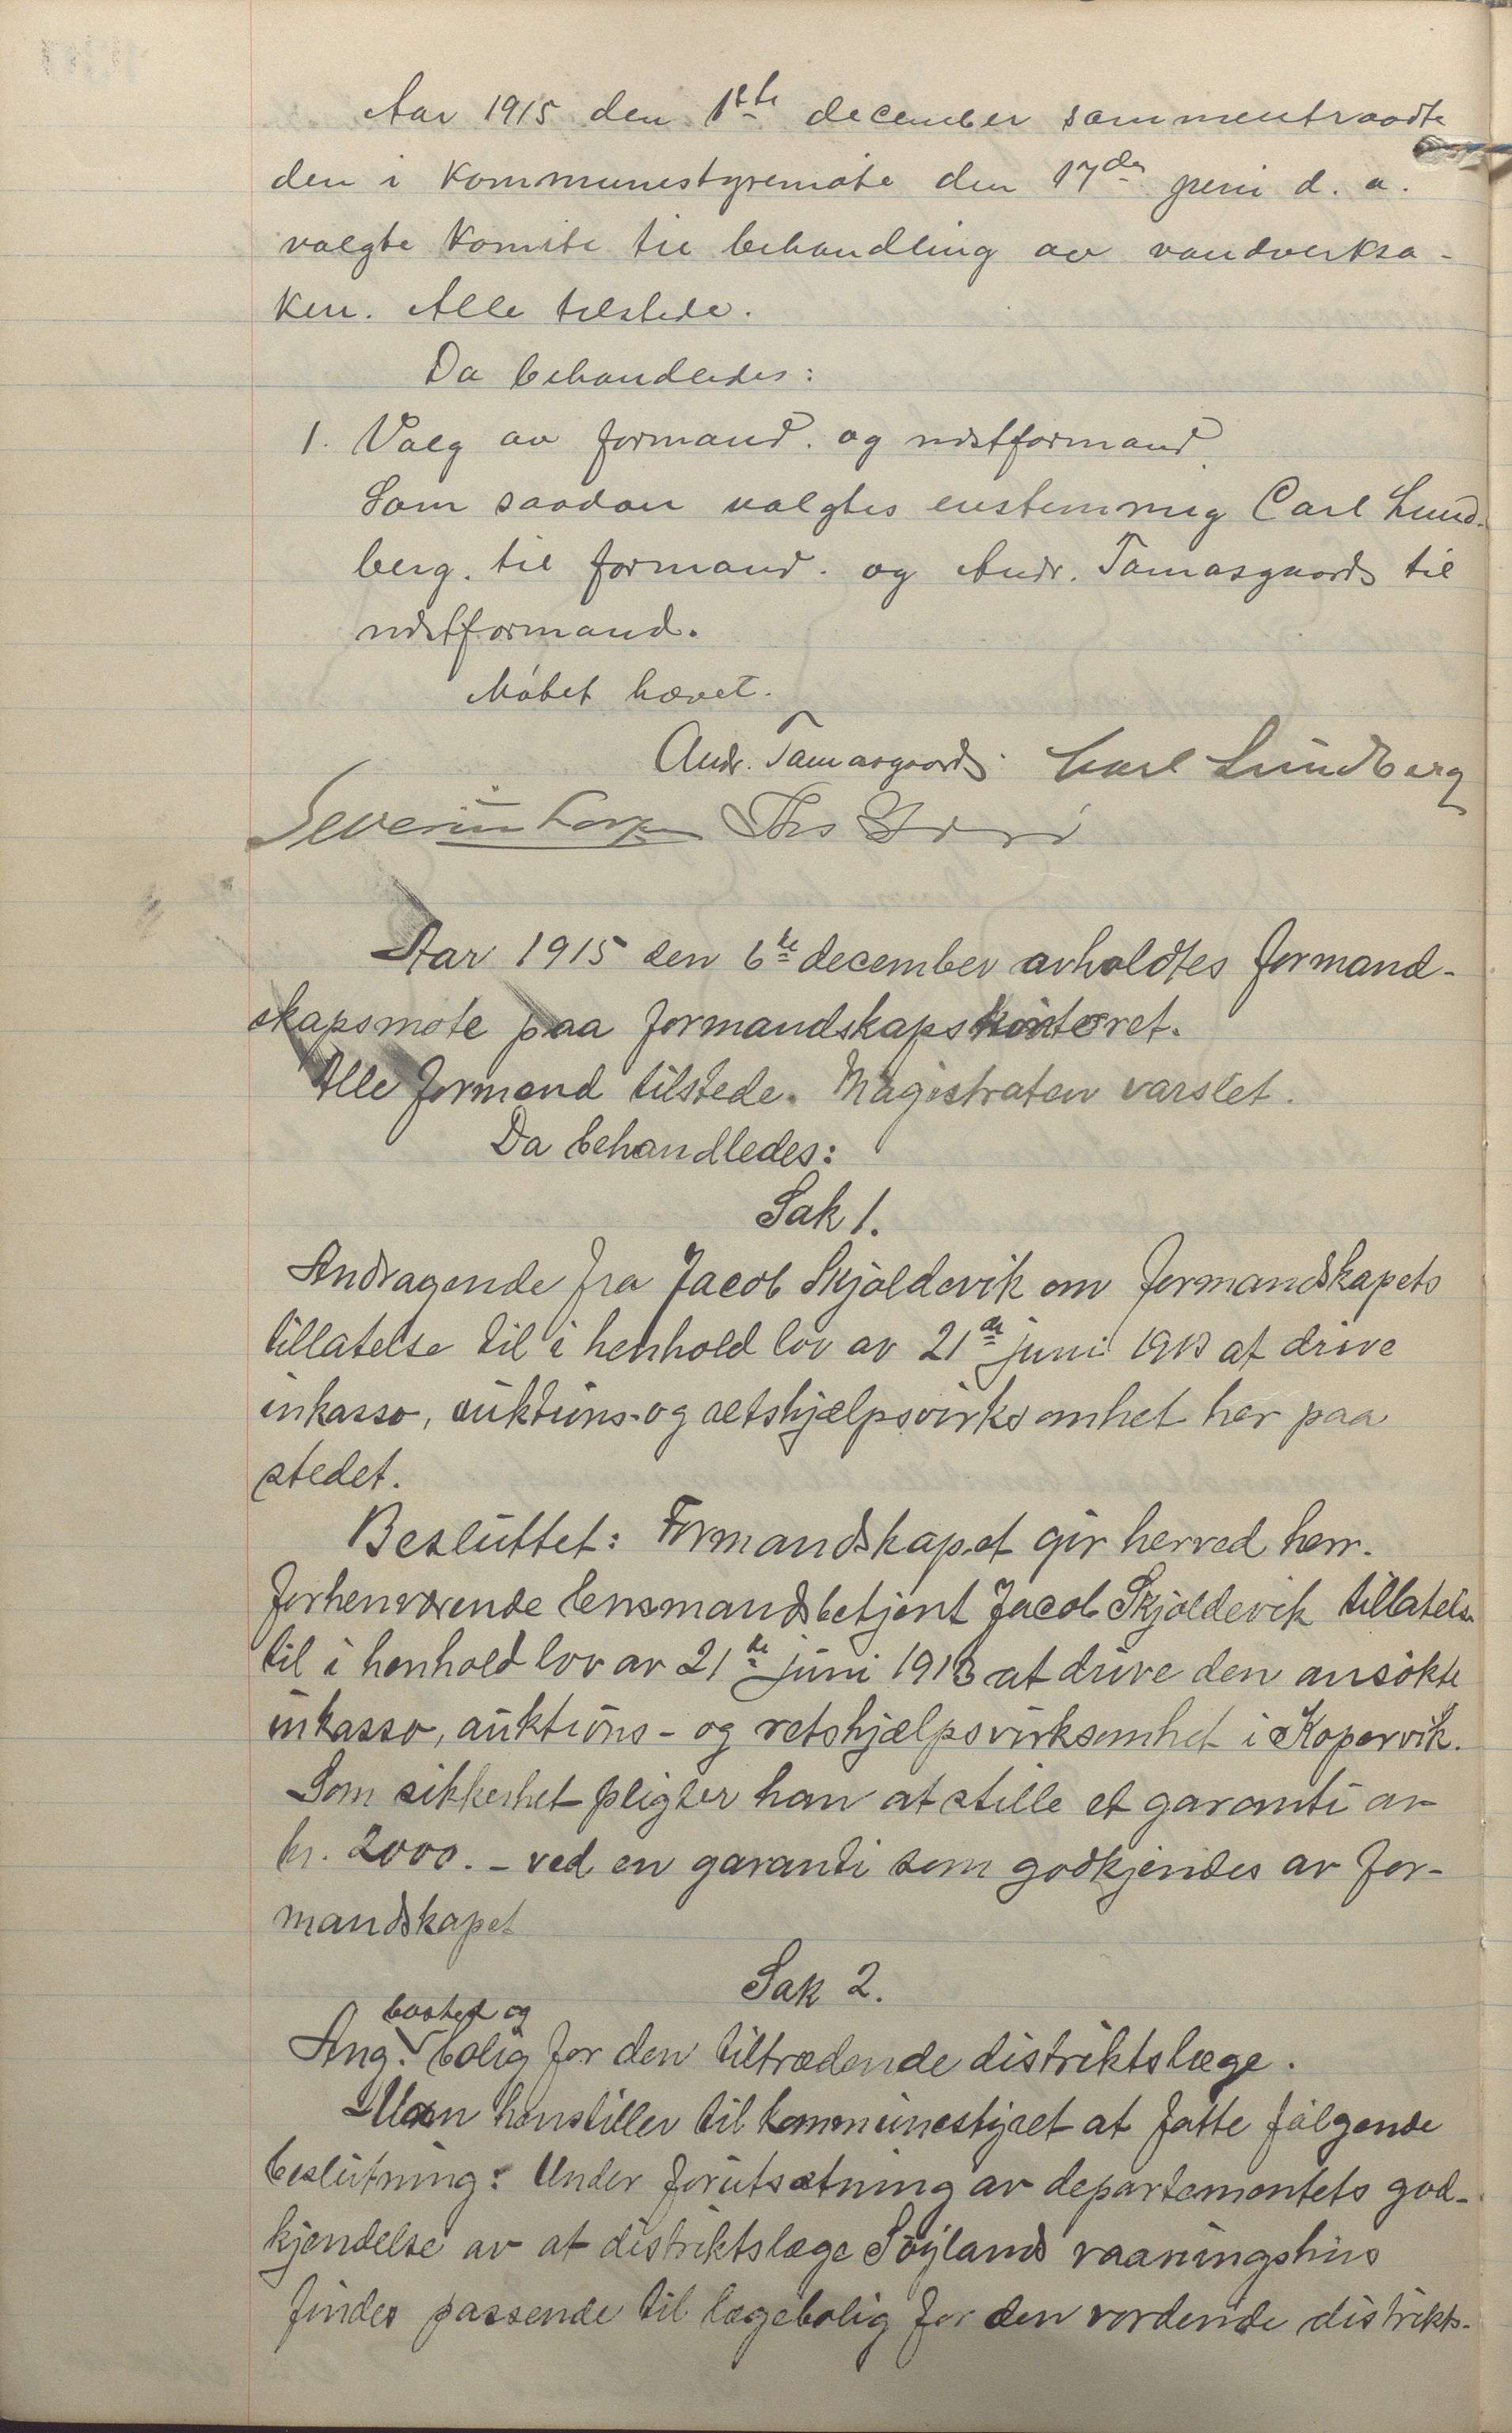 Aar 1915 den 1ste december sammentraadte
den i kommunestyremøte den 17de juni d. a.
valgte komite til behandling av vandverksa-
ken. Alle tilstede.
Da behandledes:
1. Valg av formand. og næstformand.
Som saadan valgtes enstemmig Carl Lund-
berg. til formand. og Andr. Tamasgaards til
næstformand.
Møtet hævet.
Andr. Tamasgaards. Carl Lundberg
Severin Ths
Aar 1915 den 6te december avholdtes formand-
skapsmøte paa formandskapskontoret.
Alle formænd tilstede. Magistraten varslet.
Da behandledes:
Sak 1.
Andragende fra Jacob Skjoldevik om formandskapets
tillatelse til i henhold lov av 21de juni 1913 at drive
inkasso, auktions- og retshjælpsvirksomhet her paa
stedet.
Besluttet: Formandskapet gir herved herr.
forhenværende lensmandsbetjent Jacob Skjoldevik tillatelse
til i henhold lov av 21de juni 1913 at drive den ansøkte
inkasso, auktions- og retshjælpsvirksomhet i Kopervik.
Som sikkerhet pligter han at stille et garanti av
kr. 2000. - ved en garanti som godkjendes av for-
mandskapet
Sak 2.
bosted og
Ang. bolig for den tiltrædende distriktslæge.
Man henstiller til kommunestyret at fatte følgende
beslutning: Under forutsætning av departementets god-
kjendelse av at distriktslæge Søylands vaaningshus
findes passende til lægebolig for den vordende distrikts-